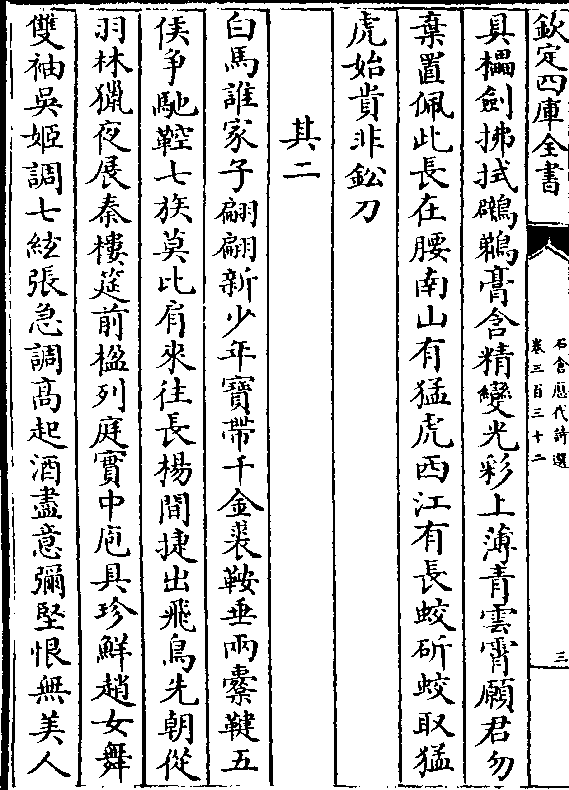 欽定四庫全書
石倉歷代詩選
卷三百三十二
三
具櫑劍拂拭鸊鵜膏含精變光彩上薄青雲霄願君勿
棄置佩此長在腰南山有猛虎西江有長蛟斫蛟取猛
虎始貴非鈆刀
其二
白馬誰家子翩翩新少年寶帶千金裘鞍垂兩櫜鞬五
侯爭馳鞚七族莫比肩來往長楊間捷出飛鳥先朝從
羽林獵夜展秦樓筵前楹列庭實中庖具珍鮮趙女舞
雙袖吳姬調七絃張急調高起酒盡意彌堅恨無美人